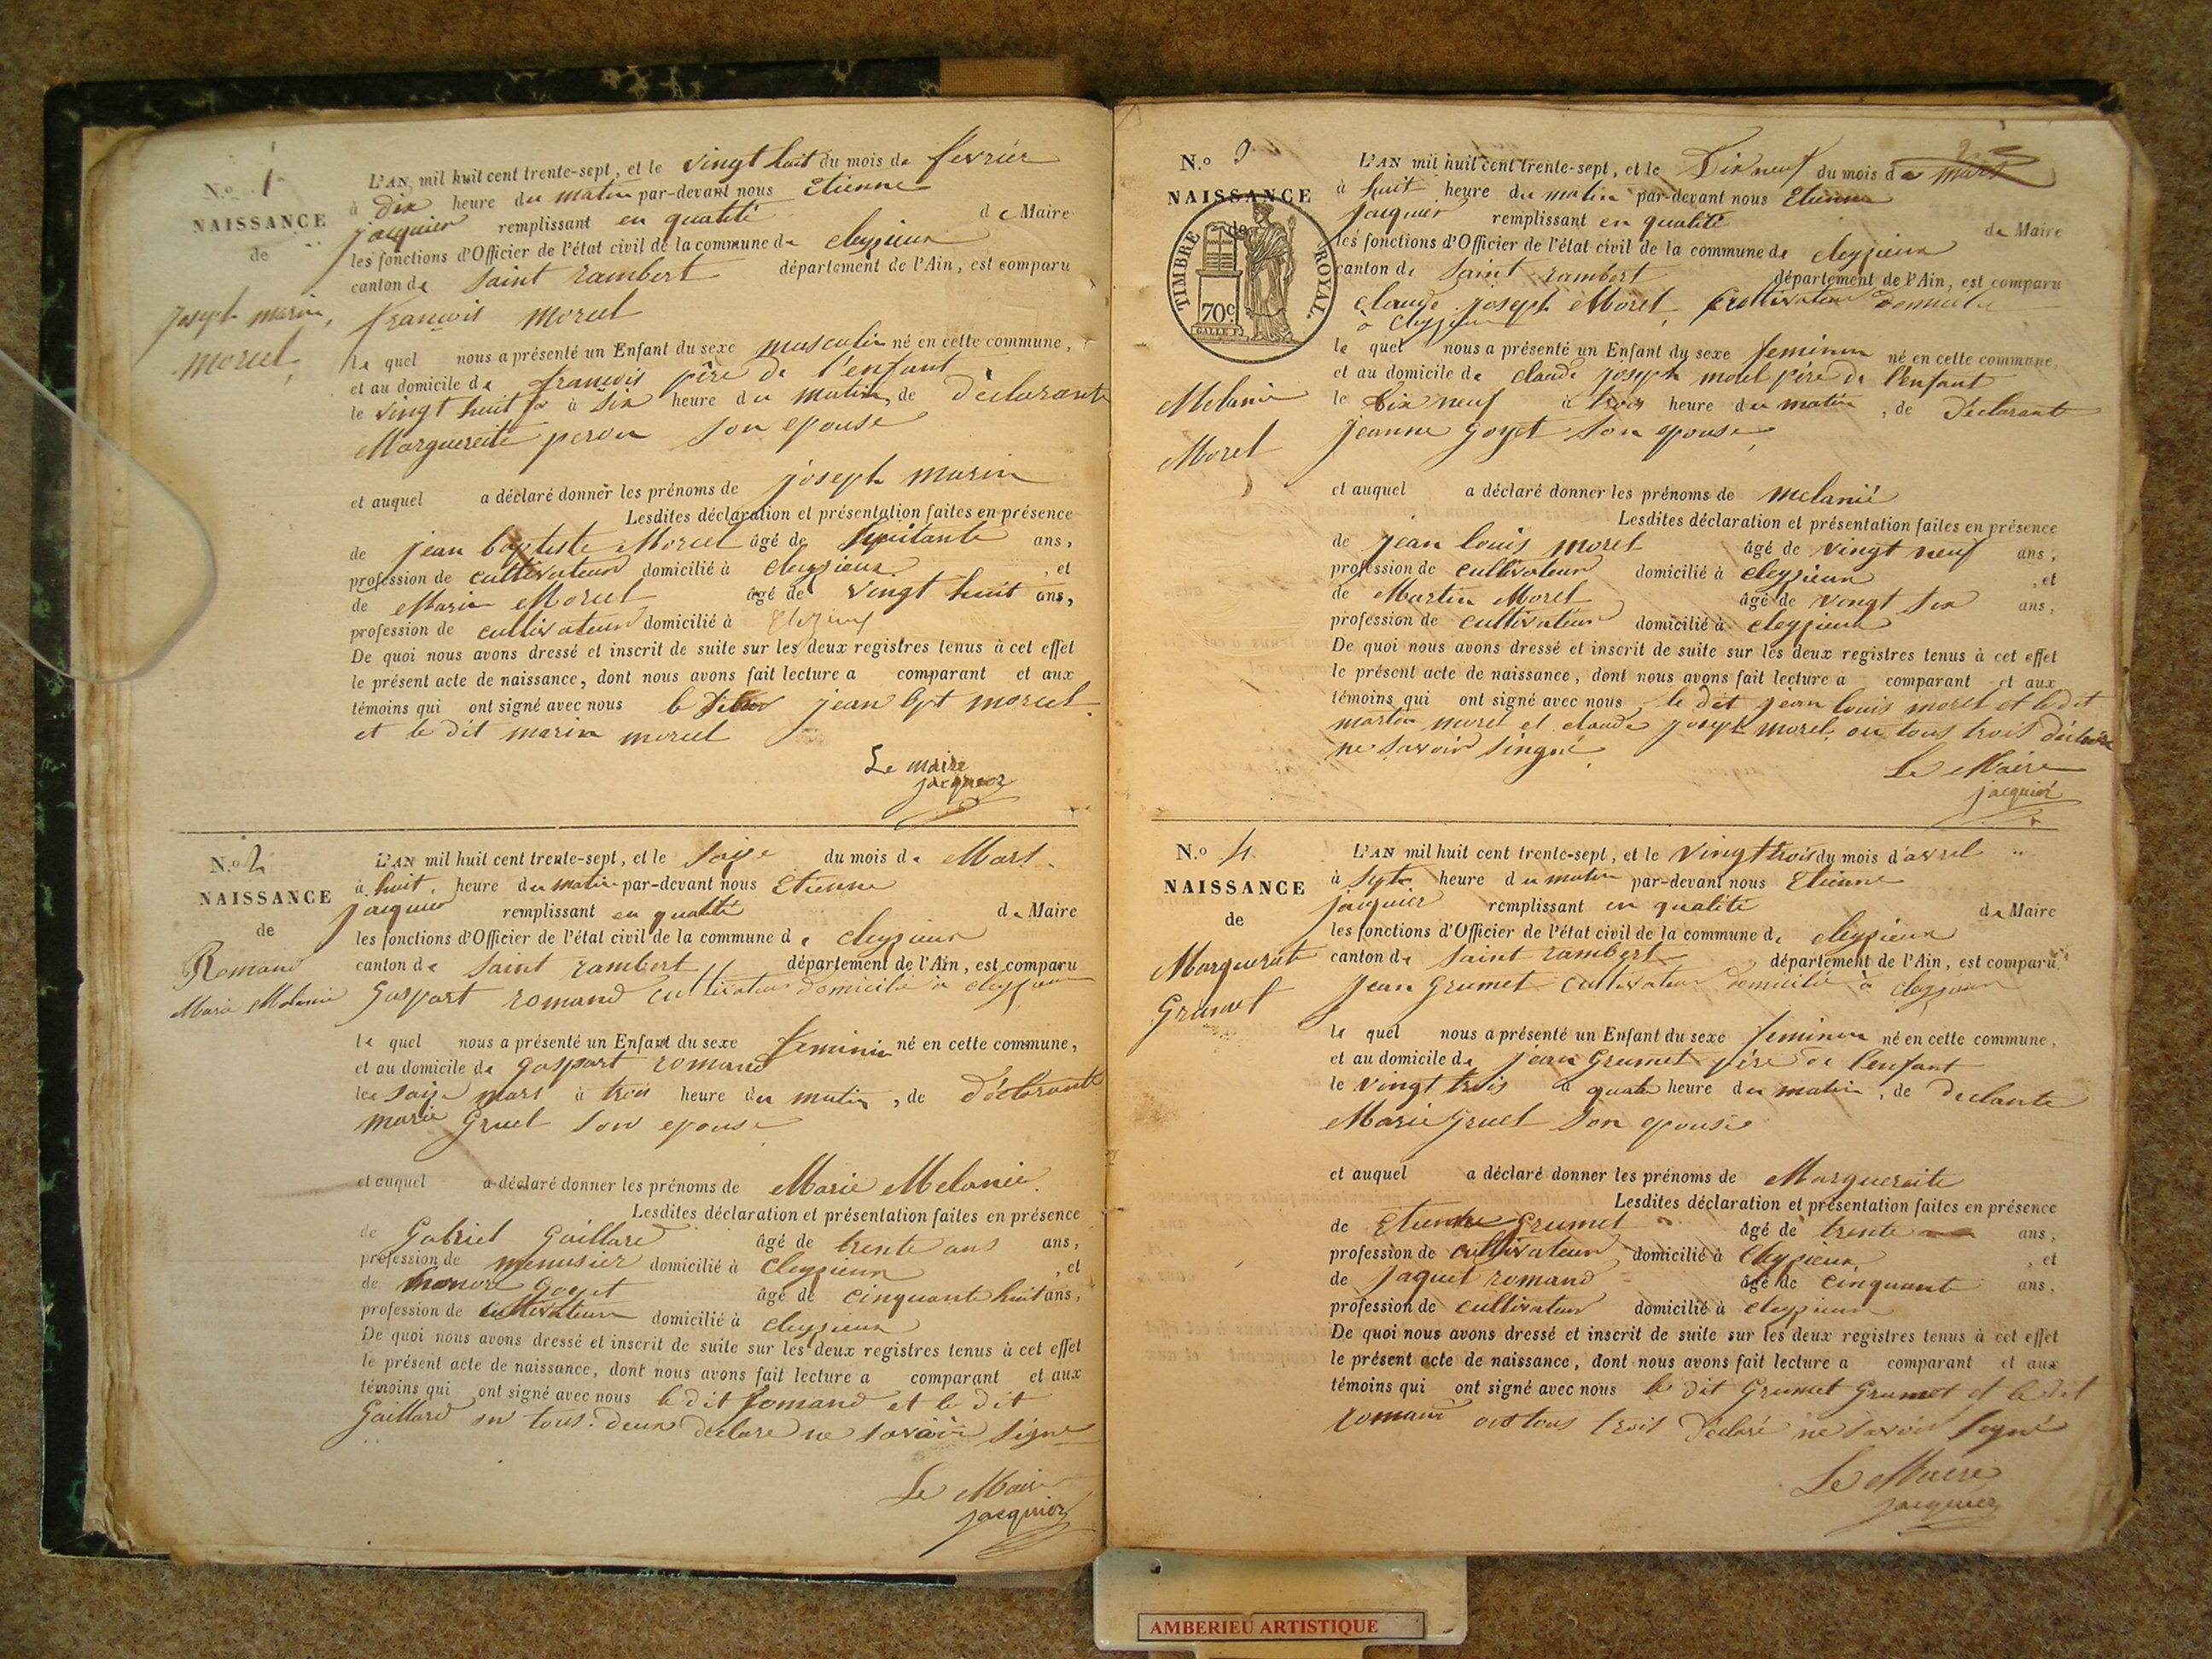 N.o 1
NAISSANCE
de
Joseph marin
morel
L'AN mil huit cent trente-sept, et le vingt huit du mois de fevrier
à Dix heure du matin par-devant nous Etienne
jacquier remplissant en qualité de Maire
les fonctions d'Officier de l'état civil de la commune de cleyzieux
canton de Saint rambert département de l'Ain, est comparu
françois morel
le quel nous a présenté un Enfant du sexe masculin né en cette commune,
et au domicile de francois père de l'enfant
le vingt huit à Six heure du matin, de Déclarante
Marguereite peron son epouse
et auquel a déclaré donner les prénoms de joseph marin
Lesdites déclaration et présentation faites en présence
de jean baptiste Morel âgé de Septante ans,
profession de cultivateur domicilié à cleyzieux, et
de Marin Morel âgé de vingt huit ans,
profession de cultivateur domicilié à
De quoi nous avons dressé et inscrit de suite sur les deux registres tenus à cet effet
le présent acte de naissance, dont nous avons fait lecture a comparant et aux
témoins qui ont signé avec nous le jean bpt morel
et le dit marin morel
Le maire
jacquier
N.o 2
NAISSANCE
de
Romand
Marie Melanie
L'AN mil huit cent trente-sept, et le saize du mois de Mars
à huit heure du matin par-devant nous Etienne
jacquier remplissant en qualité de Maire
les fonctions d'Officier de l'état civil de la commune de cleyzieux
canton de Saint rambert département de l'Ain, est comparu
Gaspart romand cultivateur domicilié a cleyzieux
le quel nous a présenté un Enfant du sexe feminin né en cette commune,
et au domicile de Gaspart romand
le saize mars à trois heure du matin, de Déclarante
marie Gruel son epouse
et auquel a déclaré donner les prénoms de Marie Melanie
Lesdites déclaration et présentation faites en présence
de Gabriel Gaillard âgé de trente ans ans,
profession de menusier domicilié à cleyzieux, et
de honoré Goyet âgé de cinquante huit ans,
profession de cultivateur domicilié à cleyzieux
De quoi nous avons dressé et inscrit de suite sur les deux registres tenus à cet effet
le présent acte de naissance, dont nous avons fait lecture a comparant et aux
témoins qui ont signé avec nous le dit Romand et le dit
Gaillard on tous deux declare ne savoir signe
Le Maire
jacquier
N.o 3
NAISSANCE
de
TIMBRE ROYAL.
70c
Melanie
Morel
L'AN mil huit cent trente-sept, et le Dix neuf du mois de mars
à huit heure du matin par-devant nous Etienne
jacquier remplissant en qualité de Maire
les fonctions d'Officier de l'état civil de la commune de cleyzieux
canton de Saint rambert département de l'Ain, est comparu
claude joseph Morel cultivateur
à cleyzieux
le quel nous a présenté un Enfant du sexe feminin né en cette commune,
et au domicile de claude joseph morel père de l'enfant
le Dix neuf à trois heure du matin, de Déclarante
jeanne Goyet son epouse
et auquel a déclaré donner les prénoms de melanie
Lesdites déclaration et présentation faites en présence
de jean louis morel âgé de vingt neuf ans,
profession de cultivateur domicilié à cleyzieux, et
de Martin Morel âgé de vingt six ans,
profession de cultivateur domicilié à cleyzieux
De quoi nous avons dressé et inscrit de suite sur les deux registres tenus à cet effet
le présent acte de naissance, dont nous avons fait lecture a comparant et aux
témoins qui ont signé avec nous le dit jean louis morel et le dit
martin morel et claude joseph morel on tous trois déclaré
ne savoir singné
Le Maire
jacquier
N.o 4
NAISSANCE
de
Marguerat
Grumet
L'AN mil huit cent trente-sept, et le vingt trois du mois d'avrel
à Septe heure du matin par-devant nous Etienne
jacquier remplissant en qualité de Maire
les fonctions d'Officier de l'état civil de la commune de cleyzieux
canton de Saint rambert département de l'Ain, est comparu
jean Grumet cultivateur domicilié à cleyzieux
le quel nous a présenté un Enfant du sexe feminin né en cette commune,
et au domicile de jean Grumet père de l'enfant
le vingt trois à quatre heure du matin, de declante
Marie Gruel son epouse
et auquel a déclaré donner les prénoms de Marguereite
Lesdites déclaration et présentation faites en présence
de Etienne Grumet âgé de trente ans,
profession de cultivateur domicilié à cleyzieux, et
de jaquet romand âgé de cinquante ans,
profession de cultivateur domicilié à cleyzieux
De quoi nous avons dressé et inscrit de suite sur les deux registres tenus à cet effet
le présent acte de naissance, dont nous avons fait lecture a comparant et aux
témoins qui ont signé avec nous le dit Grumet Grumet et le dit
romand on tous trois déclaré ne savoir signé
Le Maire
jacquier
AMBERIEU ARTISTIQUE